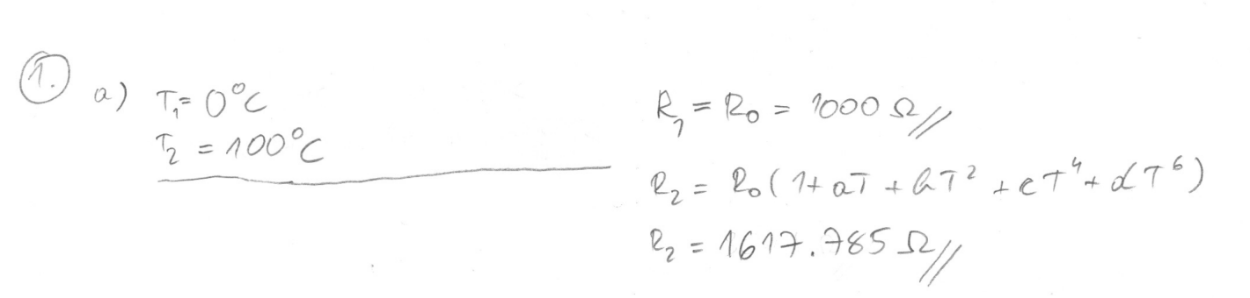 1. a) T₁ = 0°C
T₂ = 100°C
R₁ = R₀ = 1000 Ω //
R₂ = R₀ (1 + aT + bT² + cT⁴ + dT⁶)
R₂ = 1617.785 Ω //